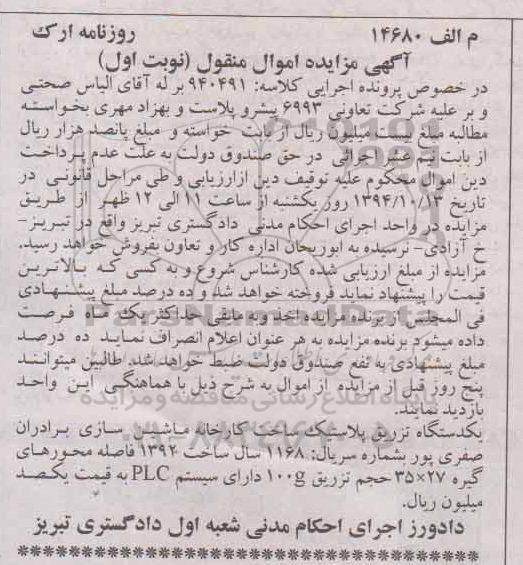 م الف ۱۴۶۸۰ روزنامه ارک
آگهی مزایده اموال منقول (نوبت اول)
در خصوص پرونده اجرایی کلاسه: ۹۴۰۴۹۱ بر له آقای الیاس صحتی
و بر علیه شرکت تعاونی ۶۹۹۳ پیشرو پلاست و بهزاد مهری بخواسته
مطالبه مبلغ بیست میلیون ریال از بابت خواسته و مبلغ پانصد هزار ریال
از بابت نیم عشر اجرائی در حق صندوق دولت به علت عدم پرداخت
دین اموال محکوم علیه توقیف دین ازارزیابی و طی مراحل قانونی در
تاریخ ۱۳۹۴/۱۰/۱۳ روز یکشنبه از ساعت ۱۱ الی ۱۲ ظهر از طریق
مزایده در واحد اجرای احکام مدنی دادگستری تبریز واقع در تبریز-
خ آزادی- نرسیده به ابوریحان اداره کار و تعاون بفروش خواهد رسید.
مزایده از مبلغ ارزیابی شده کارشناس شروع و به کسی که بالاترین
قیمت را پیشنهاد نماید فروخته خواهد شد و ده درصد مبلغ پیشنهادی
فی المجلس از برنده مزایده اخذ و به مابقی حداکثر یک ماه فرصت
داده میشود برنده مزایده به هر عنوان اعلام انصراف نماید ده درصد
مبلغ پیشنهادی به نفع صندوق دولت ضبط خواهد شد. طالبین میتوانند
پنج روز قبل از مزایده از اموال به شرح ذیل با هماهنگی این واحد
بازدید نمایند.
یکدستگاه تزریق پلاستیک ساخت کارخانه ماشین سازی برادران
صفری پور بشماره سریال: ۱۱۶۸ سال ساخت ۱۳۹۲ فاصله محورهای
گیره ۲۷×۳۵ حجم تزریق ۱۰۰g دارای سیستم PLC به قیمت یکصد
میلیون ریال.
دادورز اجرای احکام مدنی شعبه اول دادگستری تبریز